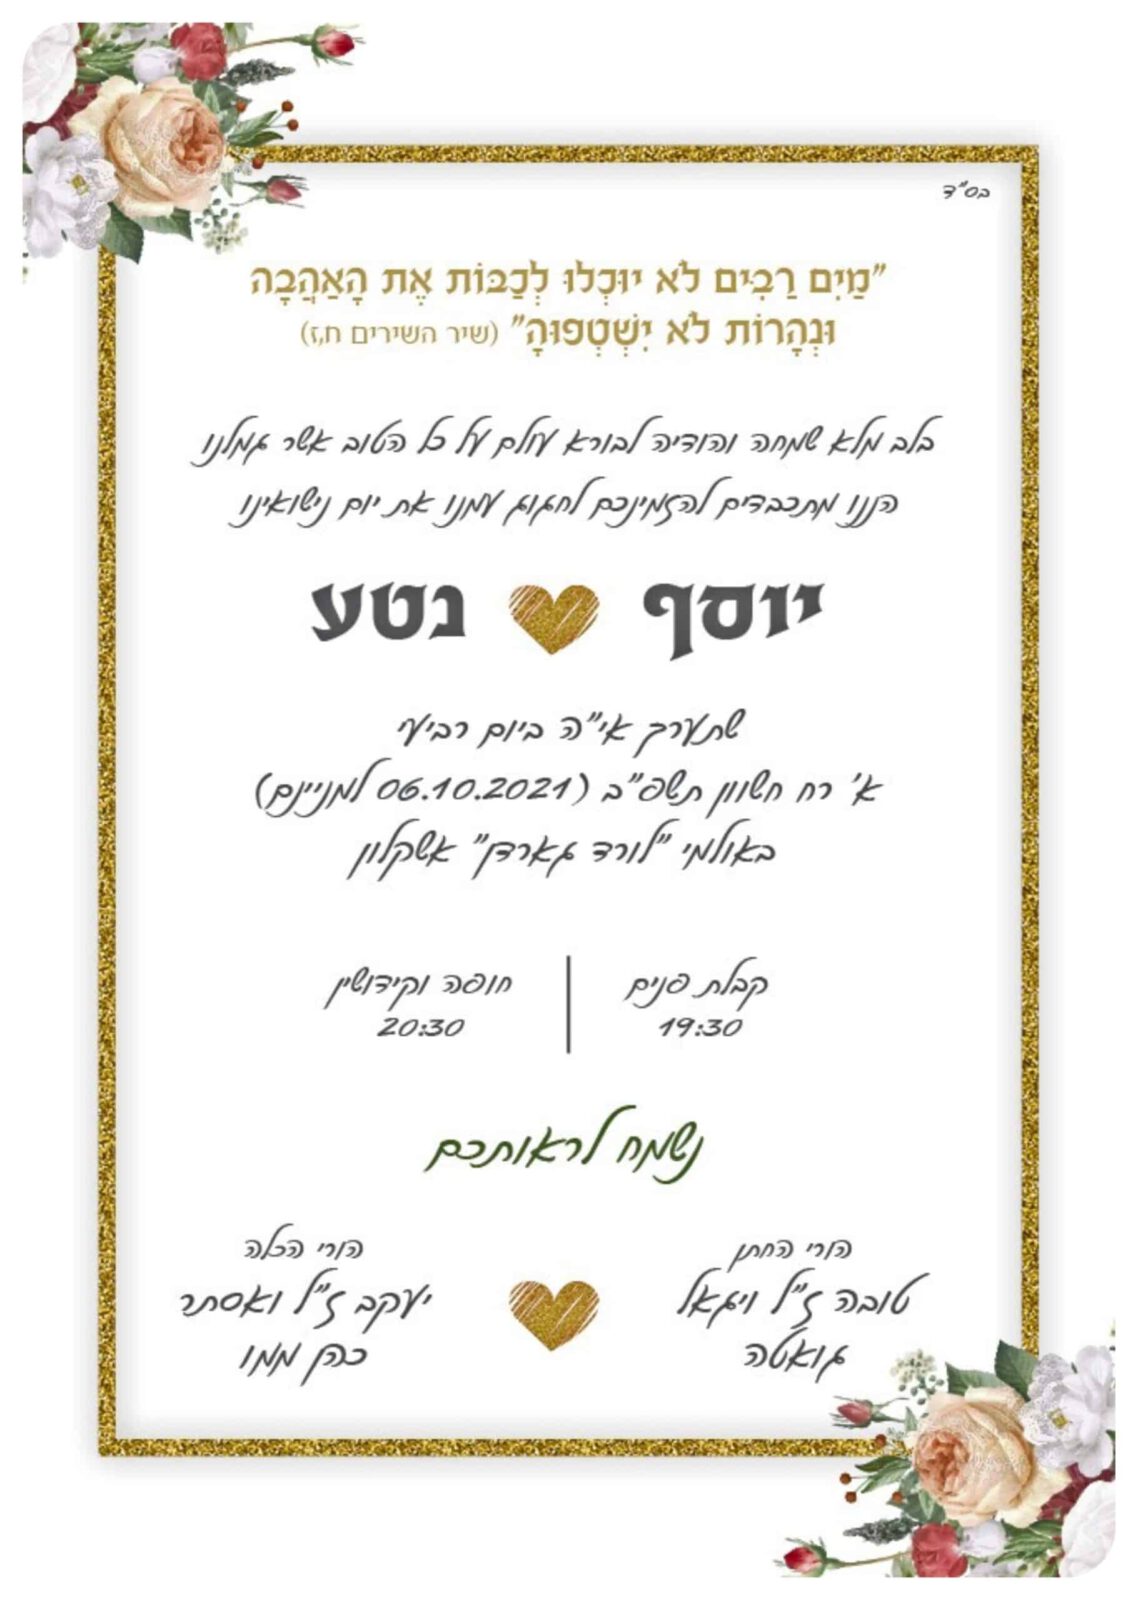 בס"ד
"מַיִם רַבִּים לֹא יוּכְלוּ לְכַבּוֹת אֶת הָאַהֲבָה
וּנְהָרוֹת לֹא יִשְׁטְפוּהָ" (שיר השירים ח,ז)
בלב מלא שמחה והודיה לבורא עולם על כל הטוב אשר גמלנו
הננו מתכבדים להזמינכם לחגוג עמנו את יום נישואינו
יוסף נטע
שתערך אי"ה ביום רביעי
א' רח חשוון תשפ"ב (06.10.2021 למניינם)
באולמי "לורד גארדן" אשקלון
קבלת פנים
19:30
חופה וקידושין
20:30
נשמח לראותכם
הורי החתן
טובה ז"ל ויגאל
גואטה
הורי הכלה
יעקב ז"ל ואסתר
כהן ממו